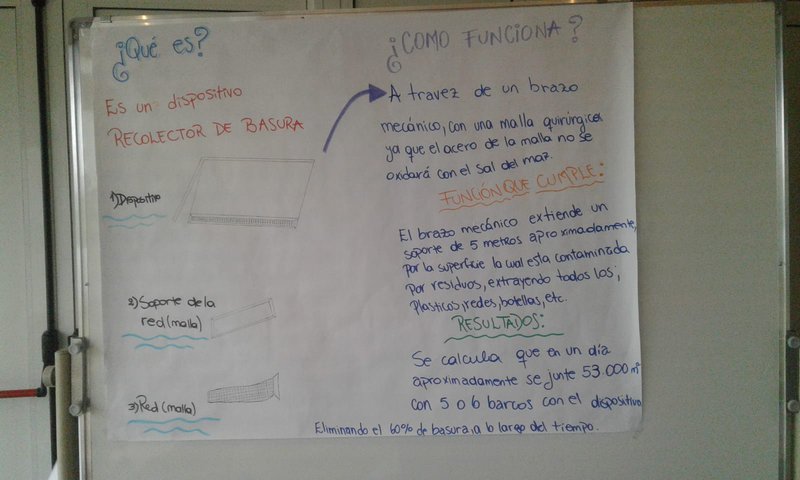 ¿Qué es?
Es un dispositivo
RECOLECTOR DE BASURA
1) Dispositivo
2) Soporte de la
red (malla)
3) Red (malla)
¿COMO FUNCIONA?
A travez de un brazo
mecánico, con una malla quirúrgica
ya que el acero de la malla no se
oxidará con el sal del mar.
FUNCIÓN QUE CUMPLE:
El brazo mecánico extiende un
soporte de 5 metros aproximadamente,
por la superficie la cual esta contaminada
por residuos, extrayendo todos los,
plasticos, redes, botellas, etc.
RESULTADOS:
Se calcula que en un día
aproximadamente se junte 53.000
con 5 o 6 barcos con el dispositivo
Eliminando el 60% de basura, a lo largo del tiempo.